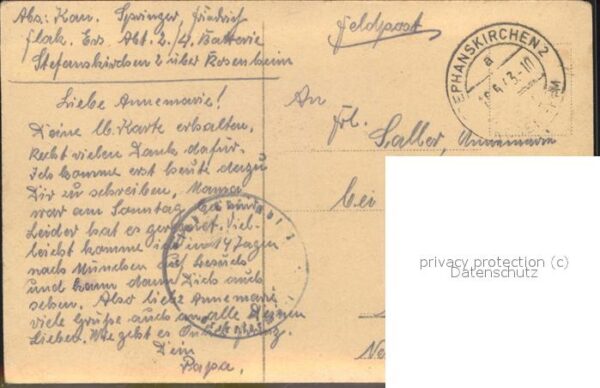 Abs: Kan. Springer, Friedrich
Flak. Ers. Abt. 2./4. Batterie
Stefanskirchen 2 über Rosenheim
Feldpost
EPHANSKIRCHEN 2
a
Liebe Annemarie!
Deine lb. Karte erhalten.
Recht vielen Dank dafür.
ich komme erst heute dazu
Dir zu schreiben, Mama
war am Sonntag bei mir
Leider hat es geregnet. Viel-
leicht komme ich in 14 Tagen
nach München auf Besuch
und kann dann Dich auch
sehen. Also liebe Annemarie
viele Grüße auch an alle Deinen
Lieben. Wie geht es
Dein
Papa.
An
Frl.
Saller, Annemarie
bei
privacy protection (c)
Datenschutz